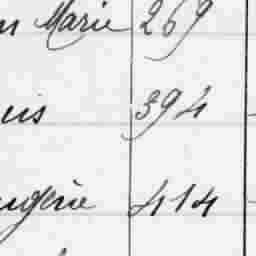 n Marie 269
uis 394
ugénie 414